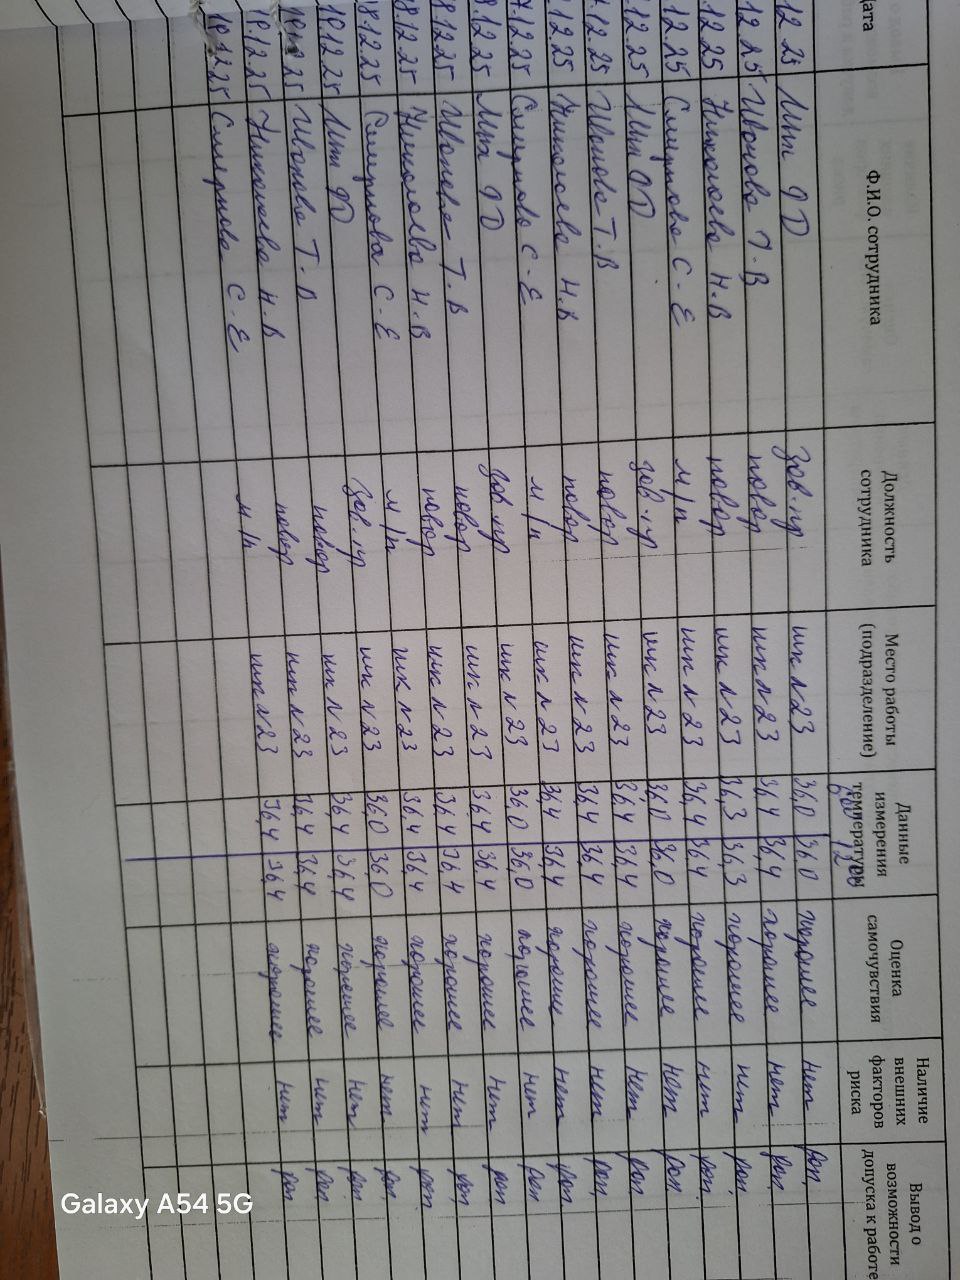 Дата Ф.И.О. сотрудника Должность сотрудника Место работы (подразделение) Данные измерения температуры Оценка самочувствия Наличие внешних факторов риска Вывод о возможности допуска к работе
12 00
12 25 зав. пр шк №23 36,0 36,0 хорошее нет доп
12 25 Иванова Т.В повар шк №23 36,4 36,4 хорошее нет доп
12 25 Николаева Н.В повар шк №23 36,3 36,3 хорошее нет доп.
12 25 Смирнова С-Е м/п шк №23 36,4 36,4 хорошее нет доп.
12 25 зав. пр шк №23 36,0 36,0 хорошее нет доп
12 25 Иванова Т.В повар шк №23 36,4 36,4 хорошее нет доп
12 25 Николаева Н.В повар шк №23 36,4 36,4 хорошее нет доп
7.12 25 Смирнова С-Е м/п шк №23 36,4 36,4 хорошее нет доп
8 12 25 зав. пр шк №23 36,0 36,0 хорошее нет доп
8.12 25 Иванова Т.В повар шк №23 36,4 36,4 хорошее нет доп
8.12.25 Николаева Н.В повар шк №23 36,4 36,4 хорошее нет доп
8.12.25 Смирнова С-Е м/п шк №23 36,4 36,4 хорошее нет доп.
19 12 25 зав. пр шк №23 36,0 36,0 хорошее нет доп
19 12 25 Иванова Т.В повар шк №23 36,4 36,4 хорошее нет доп
19.12.25 Николаева Н.В повар шк №23 36,4 36,4 хорошее нет доп
19.12.25 Смирнова С-Е м/п шк №23 36,4 36,4 хорошее нет доп
Galaxy A54 5G